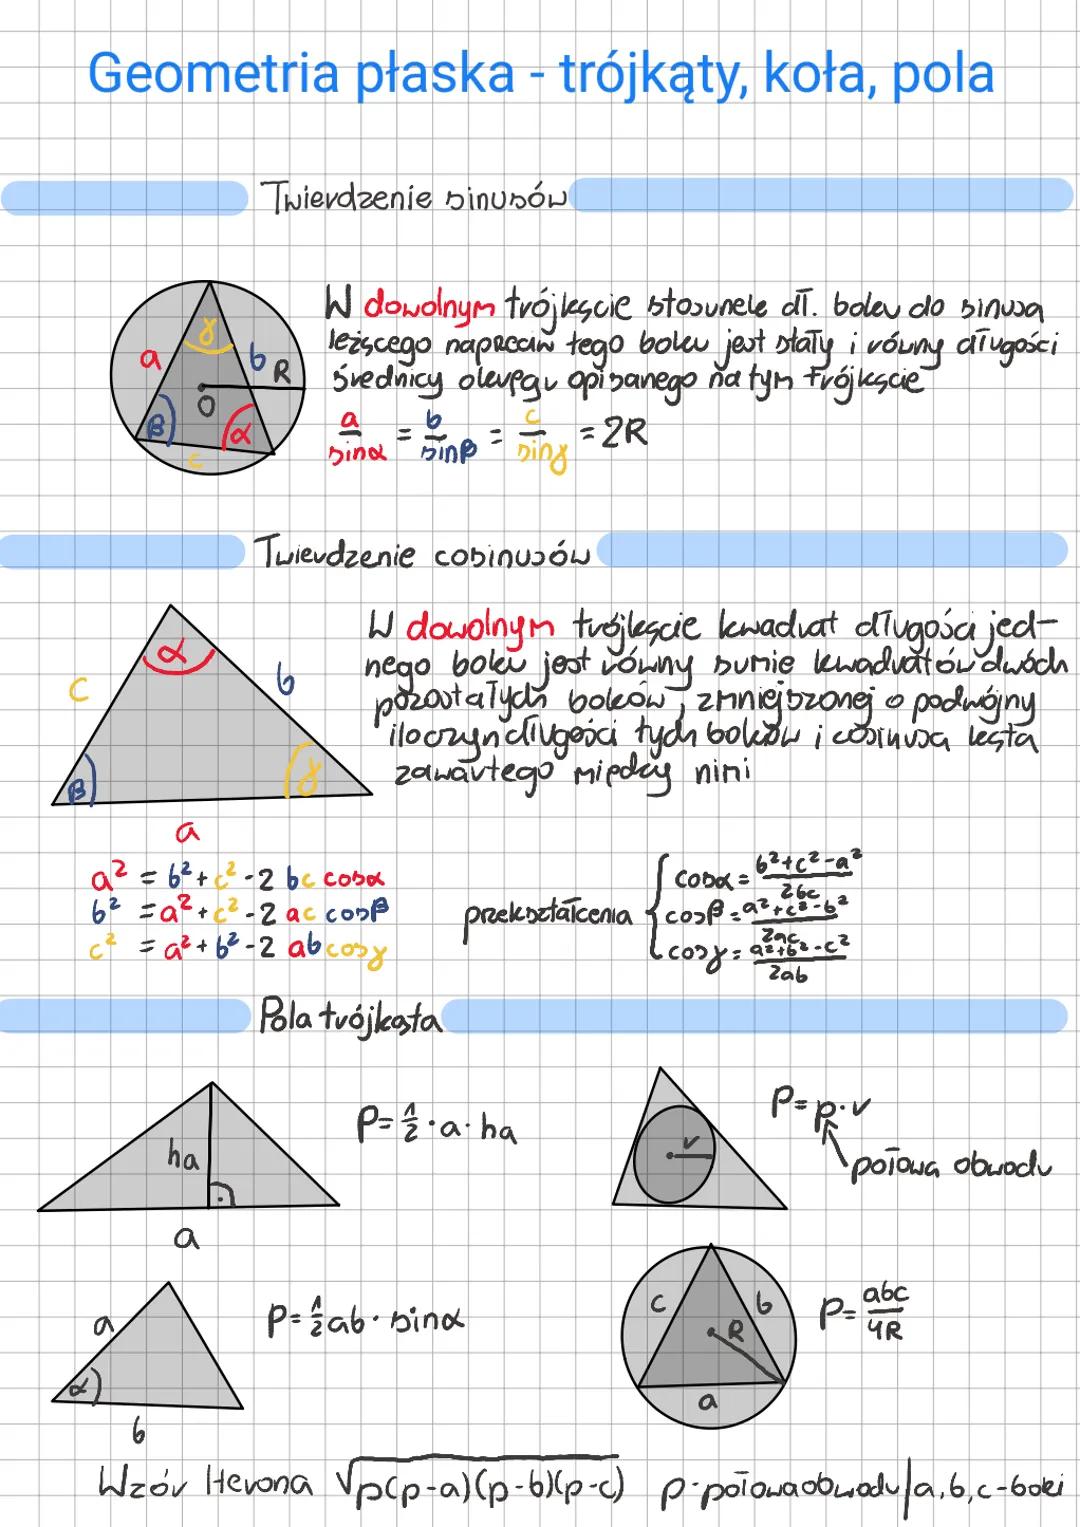 Geometria płaska - trójkąty, koła, pola
Twierdzenie sinusów
W dowolnym trójkącie stosunek dł. boku do sinusa
leżącego naprzeciw tego boku jest stały i równy długości
średnicy okręgu opisanego na tym trójkącie
a/sinα = b/sinβ = c/sinγ = 2R
a
γ
b
R
O
β
α
c
Twierdzenie cosinusów
W dowolnym trójkącie kwadrat długości jed-
nego boku jest równy sumie kwadratów dwóch
pozostałych boków, zmniejszonej o podwójny
iloczyn długości tych boków i cosinusa kąta
zawartego między nimi
α
c
b
β
γ
a
a² = b² + c² - 2 bc cosα
b² = a² + c² - 2 ac cosβ
c² = a² + b² - 2 ab cosγ
przekształcenia
cosα = b²+c²-a²/2bc
cosβ = a²+c²-b²/2ac
cosγ = a²+b²-c²/2ab
Pola trójkąta
ha
a
P = 1/2 · a · ha
r
P = p · r
połowa obwodu
a
α
b
P = 1/2 ab · sinα
c
b
R
a
P = abc/4R
Wzór Herona √p(p-a)(p-b)(p-c) p - połowa obwodu / a, b, c - boki